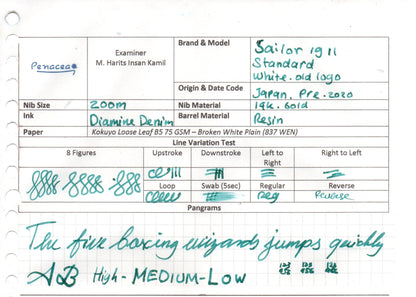 Penacea
Examiner
M. Harits Insan Kamil
Brand & Model
Sailor 1911
Standard
White. old logo
Origin & Date Code
Japan, Pre.2020
Nib Size
zoom
Nib Material
14k. Gold
Ink
Diamine Denim
Barrel Material
Resin
Paper
Kokuyo Loose Leaf B5 75 GSM – Broken White Plain (837 WEN)
Line Variation Test
8 Figures
Upstroke
Downstroke
Left to Right
Right to Left
Loop
Swab (5sec)
Regular
Reverse
reg
Reverse
Pangrams
The five boxing wizards jumps quickly
AB High-MEDIUM-LOW
123 123 123
456 456 456